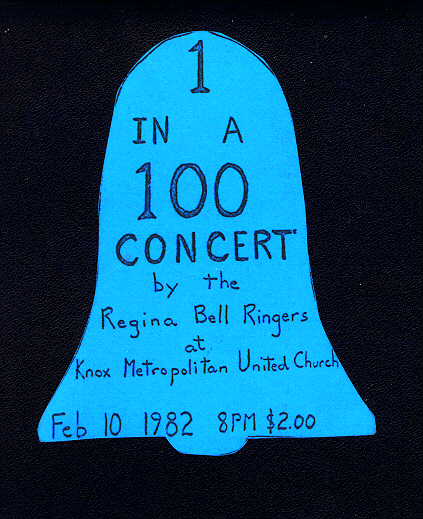 1
IN A
100
CONCERT
by the
Regina Bell Ringers
at
Knox Metropolitan United Church
Feb 10 1982 8PM $2.00